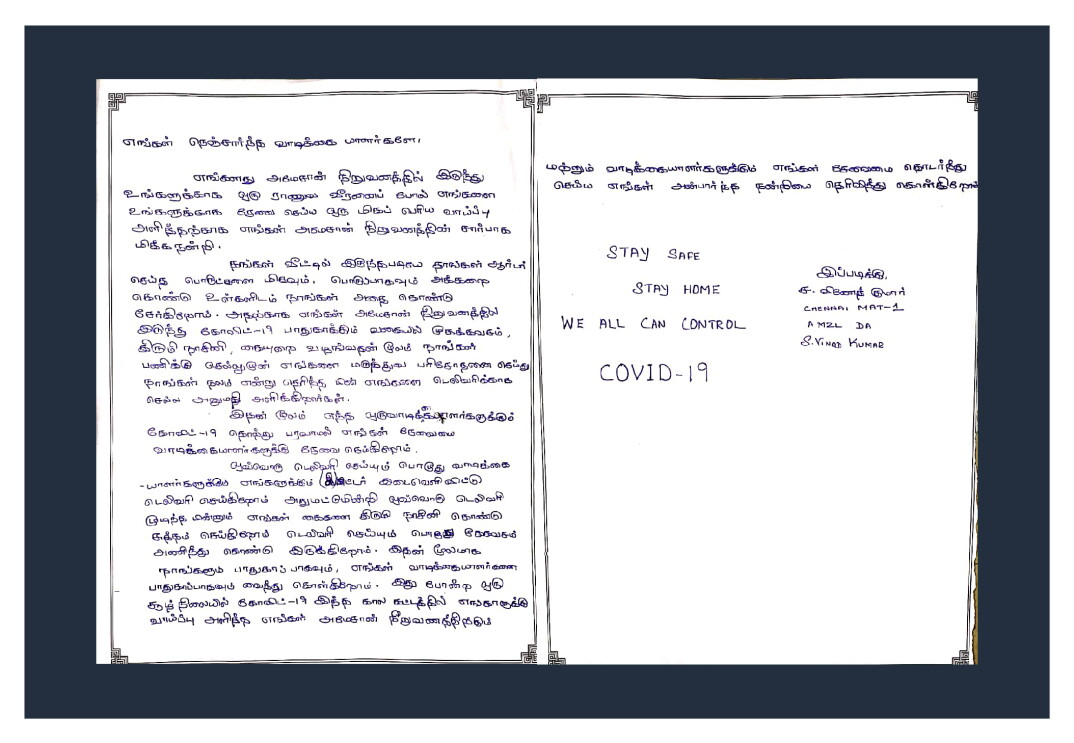 எங்கள் நெஞ்சார்ந்த வாடிக்கை யாளர்களே,
எங்களது அமேசான் நிறுவனத்தில் இருந்து
உங்களுக்காக ஒரு ராணுவ வீரனைப் போல் எங்களை
உங்களுக்காக சேவை செய்ய ஒரு மிகப் பெரிய வாய்ப்பு
அளித்ததற்காக எங்கள் அமேசான் நிறுவனத்தின் சார்பாக
மிக்க நன்றி.
நீங்கள் வீட்டில் இருந்தபடியே தாங்கள் ஆர்டர்
செய்த பொருட்களை மிகவும், பொறுப்பாகவும் அக்கறை
கொண்டு உங்களிடம் நாங்கள் அதை கொண்டு
சேர்கிறோம். அதற்காக எங்கள் அமேசான் நிறுவனத்தில்
இருந்து கோவிட்-19 பாதுகாக்கும் வகையில் முகக்கவசம்,
கிருமி நாசினி, கையுறை வழங்குவதன் மூலம் நாங்கள்
பணிக்கு செல்லுமுன் எங்களை மருத்துவ பரிசோதனை செய்து
நாங்கள் நலம் என்று தெரிந்த பின் எங்களை டெலிவரிக்காக
செல்ல அனுமதி அளிக்கிறார்கள்.
இதன் மூலம் எந்த ஒரு வாடிக்கையாளர்களுக்கும்
கோவிட்-19 தொற்று பரவாமல் எங்கள் சேவையை
வாடிக்கையாளர்களுக்கு சேவை செய்கிறோம்.
ஒவ்வொரு டெலிவரி செய்யும் பொழுது வாடிக்கை
-யாளர்களுக்கும் எங்களுக்கும் மீட்டர் இடைவெளி விட்டு
டெலிவரி செய்கிறோம் அதுமட்டுமின்றி ஒவ்வொரு டெலிவரி
முடிந்த பின்னும் எங்கள் கைகளை கிருமி நாசினி கொண்டு
சுத்தம் செய்கிறோம் டெலிவரி செய்யும் பொழுது
அணிந்து கொண்டு இருக்கிறோம். இதன் மூலமாக
நாங்களும் பாதுகாப்பாகவும், எங்கள் வாடிக்கையாளர்களை
பாதுகாப்பாகவும் வைத்து கொள்கிறோம். இது போன்ற ஒரு
சூழ்நிலையில் கோவிட்-19 இந்த கால கட்டத்தில் எங்களுக்கு
வாய்ப்பு அளித்த எங்கள் அமேசான் நிறுவனத்திற்கும்
மற்றும் வாடிக்கையாளர்களுக்கும் எங்கள் சேவையை தொடர்ந்து
செய்ய எங்கள் அன்பார்ந்த நன்றியை தெரிவித்து கொள்கிறோம்
STAY SAFE
STAY HOME
WE ALL CAN CONTROL
COVID-19
இப்படிக்கு,
ச. வினோத் குமார்
CHENNAI MAT-1
AMZL DA
S.VINOD KUMAR